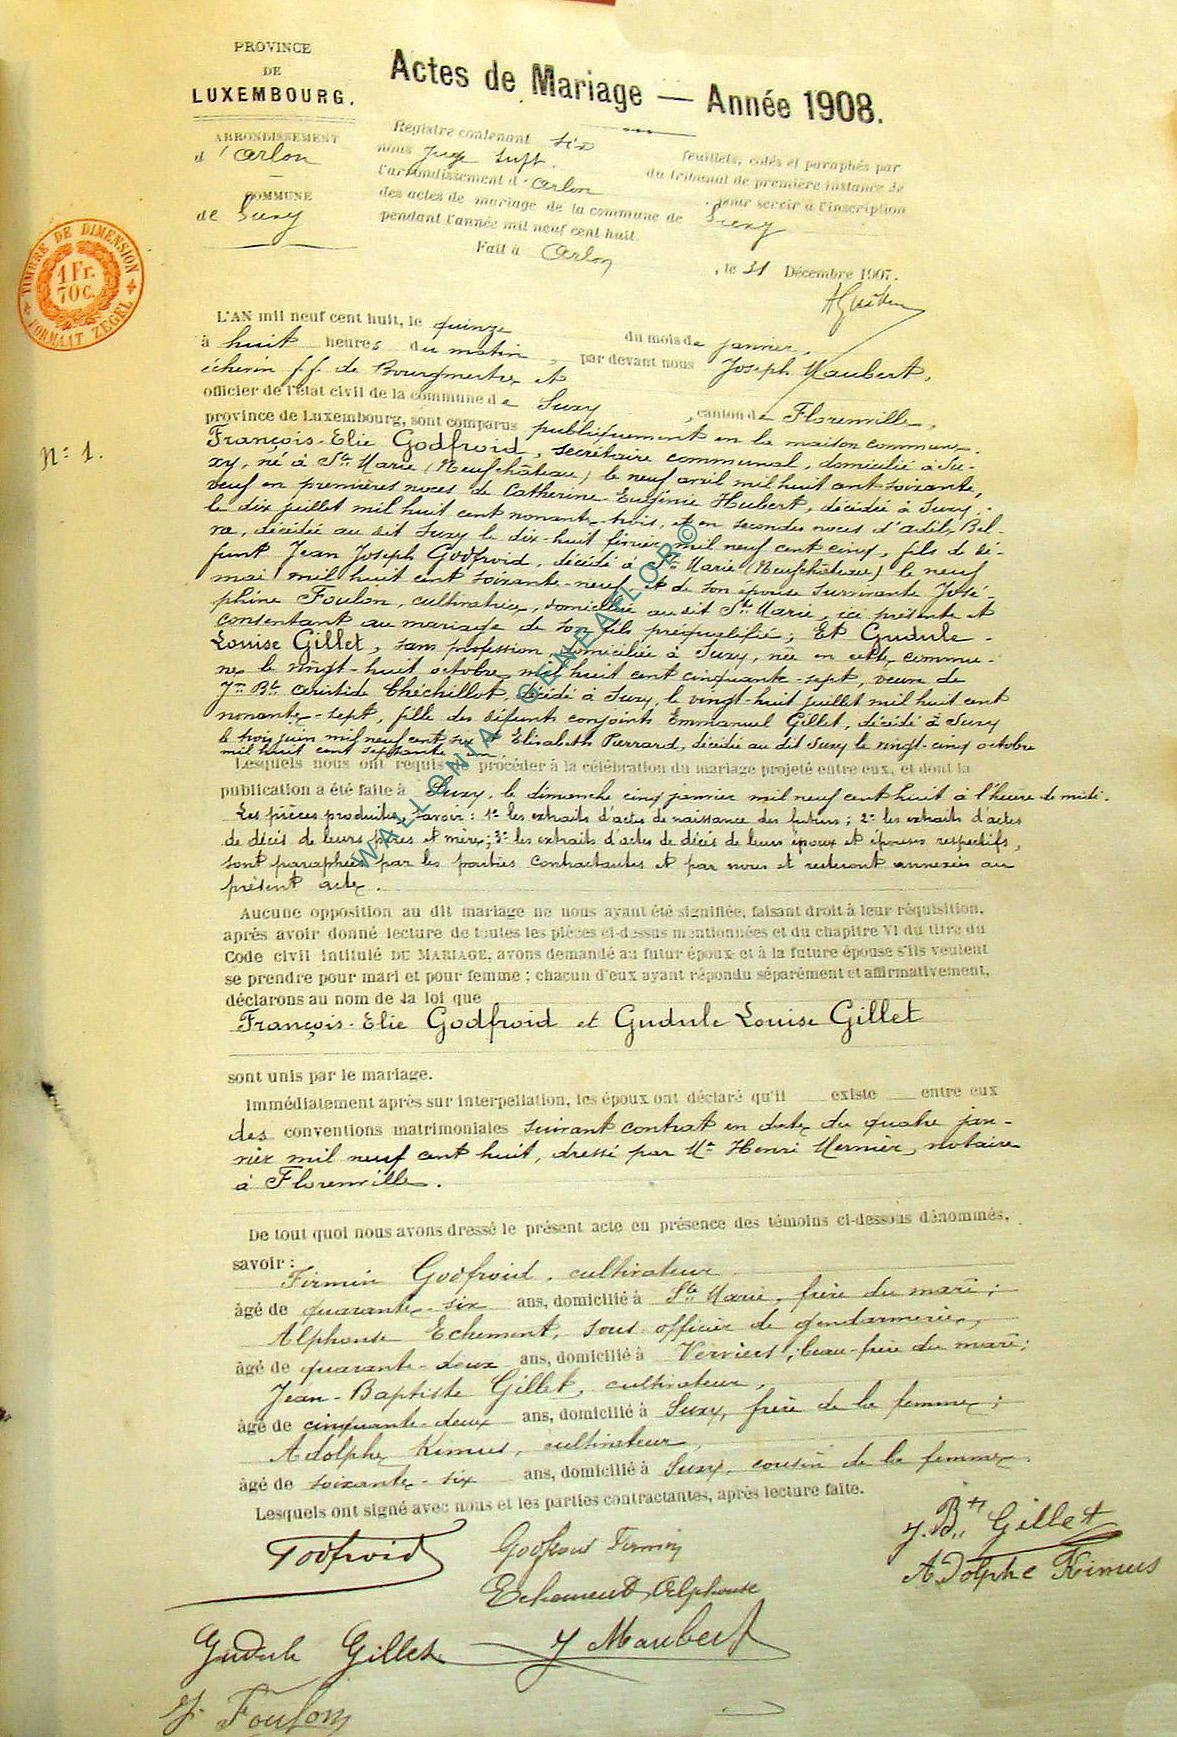 PROVINCE
DE
LUXEMBOURG.
ARRONDISSEMENT
d'Arlon
COMMUNE
de Suxy
TIMBRE DE DIMENSION
1 Fr.
70 C.
FORMAAT ZEGEL
Actes de Mariage — Année 1908.
Registre contenant six feuillets, cotés et paraphés par
nous Juge Supt. du tribunal de première instance de
l'arrondissement d'Arlon pour servir à l'inscription
des actes de mariage de la commune de Suxy
pendant l'année mil neuf cent huit.
Fait à Arlon, le 31 Décembre 1907.
N° 1.
L'AN mil neuf cent huit, le quinze du mois de janvier,
à huit heures du matin, par devant nous Joseph Maubert,
échevin ff. de Bourgmestre et
officier de l'état civil de la commune de Suxy, canton de Florenville,
province de Luxembourg, sont comparus publiquement en la maison commune.
François-Elie Godfroid, secrétaire communal, domicilié à Su-
xy, né à Ste Marie (Neufchâteau) le neuf avril mil huit cent soixante,
veuf en premières noces de Catherine Eugénie Hubert, décédée à Suxy
le dix juillet mil huit cent nonante-trois, et en secondes noces d'Adile Bel-
va, décédée au dit Suxy le dix-huit février mil neuf cent cinq, fils de dé-
funt Jean Joseph Godfroid, décédé à Ste Marie (Neufchâteau) le neuf
mai mil huit cent soixante-neuf et de son épouse survivante José-
phine Foulon, cultivatrice, domiciliée au dit Ste Marie, ici présente et
consentant au mariage de son fils préqualifié; Et Gudule-
Louise Gillet, sans profession, domiciliée à Suxy, née en cette commu-
ne, le vingt-huit octobre mil huit cent cinquante-sept, veuve de
Jn Bte Aristide Théchillot, décédé à Suxy, le vingt-huit juillet mil huit cent
nonante-sept, fille des défunts conjoints Emmanuel Gillet, décédé à Suxy
le trois juin mil neuf cent six et Elisabeth Pierrard, décédée au dit Suxy le vingt-cinq octobre
mil huit cent septante un
Lesquels nous ont requis de procéder à la célébration du mariage projeté entre eux, et dont la
publication a été faite à Suxy, le dimanche cinq janvier mil neuf cent huit à l'heure de midi.
Les pièces produites, savoir: 1° les extraits d'actes de naissance des futurs; 2° les extraits d'actes
de décès de leurs pères et mère; 3° les extraits d'actes de décès de leurs époux et épouses respectifs,
sont paraphées par les parties contractantes et par nous et resteront annexées au
présent acte.
Aucune opposition au dit mariage ne nous ayant été signifiée, faisant droit à leur réquisition,
après avoir donné lecture de toutes les pièces ci-dessus mentionnées et du chapitre VI du titre du
Code civil intitulé DU MARIAGE, avons demandé au futur époux et à la future épouse s'ils veulent
se prendre pour mari et pour femme; chacun d'eux ayant répondu séparément et affirmativement,
déclarons au nom de la loi que
François-Elie Godfroid et Gudule Louise Gillet
sont unis par le mariage.
Immédiatement après sur interpellation, les époux ont déclaré qu'il existe entre eux
des conventions matrimoniales suivant contrat en date du quatre jan-
vier mil neuf cent huit, dressé par Me Henri Mernier, notaire
à Florenville.
De tout quoi nous avons dressé le présent acte en présence des témoins ci-dessous dénommés,
savoir:
Firmin Godfroid, cultivateur
âgé de quarante-six ans, domicilié à Ste Marie, frère du marié;
Alphonse Echement, sous officier de gendarmerie,
âgé de quarante-deux ans, domicilié à Verviers, beau-frère du marié;
Jean-Baptiste Gillet, cultivateur,
âgé de cinquante-deux ans, domicilié à Suxy, frère de la femme;
Adolphe Kimus, cultivateur,
âgé de soixante-six ans, domicilié à Suxy, cousin de la femme.
Lesquels ont signé avec nous et les parties contractantes, après lecture faite.
Godfroid
Godfroid Firmin
J. Bte Gillet
Echement Alphonse
Adolphe Kimus
Gudule Gillet
J Maubert
J. Foulon
WALLONIA GENEAFLOR©